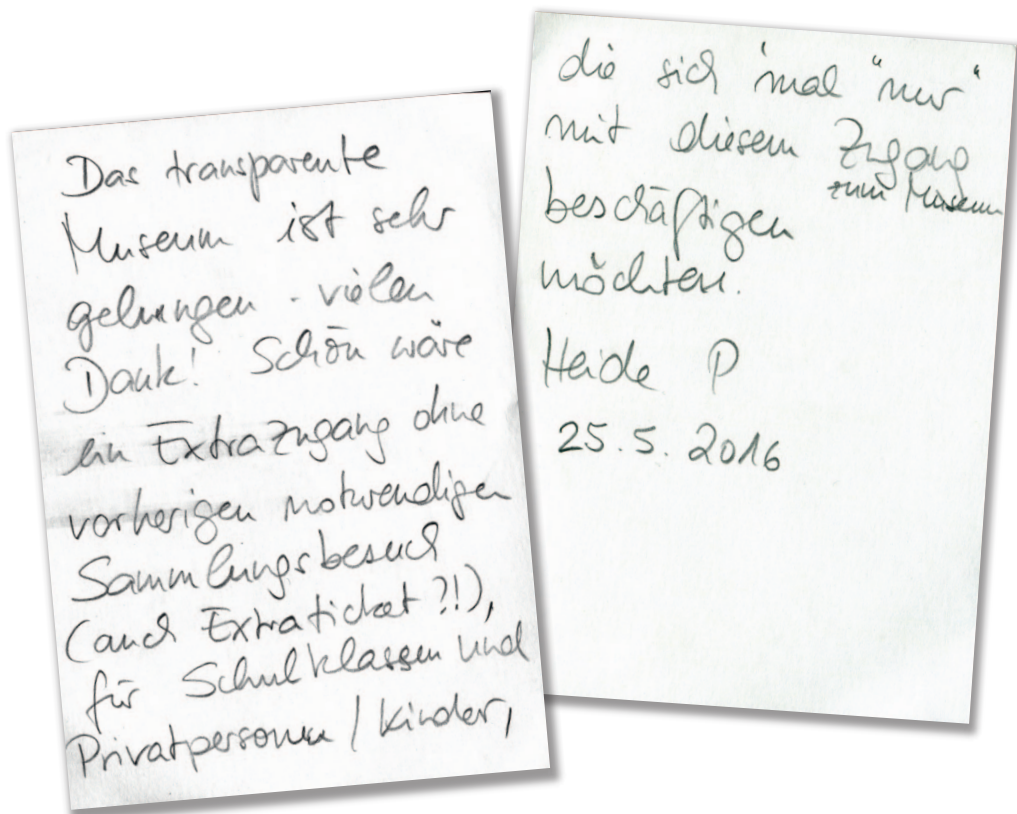 Das transparente
Museum ist sehr
gelungen - vielen
Dank! Schön wäre
ein Extrazugang ohne
vorherigen notwendigen
Sammlungsbesuch
(auch Extraticket?!),
für Schulklassen und
Privatpersonen / Kinder,
die sich 'mal "nur"
mit diesem Zugang
zum Museum
beschäftigen
möchten.
Heide P
25.5.2016